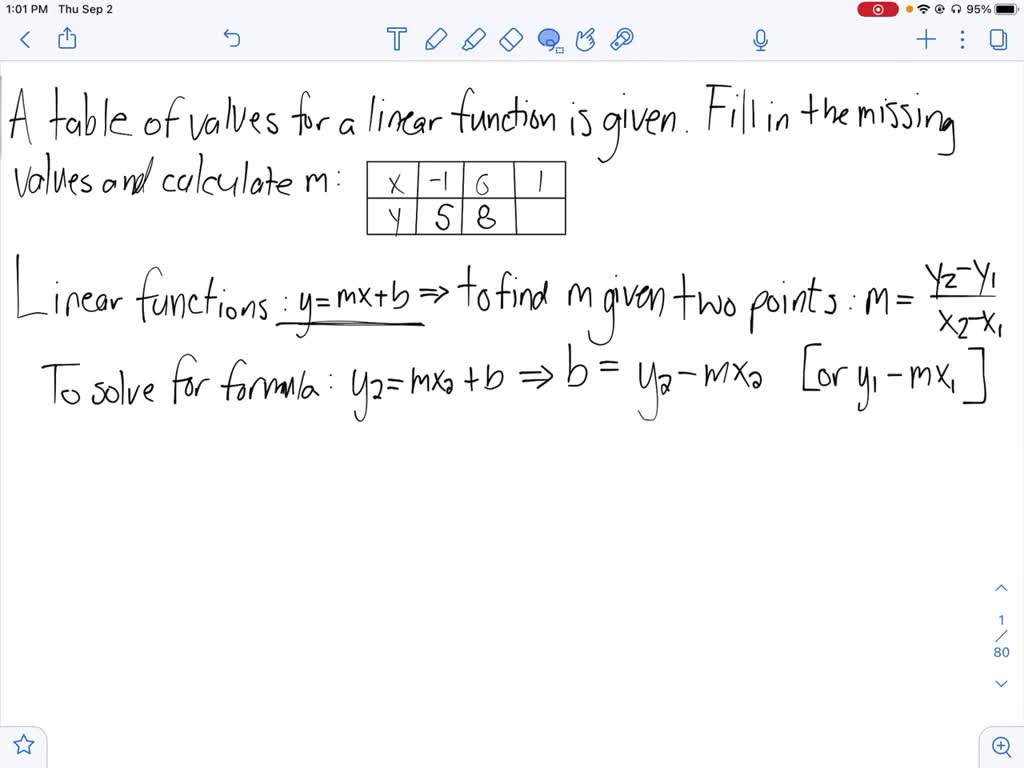 1:01 PM Thu Sep 2 95%
T
A table of values for a linear function is given. Fill in the missing
values and calculate m:
x -1 0 1
y 5 8
Linear functions: y=mx+b ⇒ to find m given two points: m = (y₂-y₁)/(x₂-x₁)
To solve for formula: y₂=mx₂+b ⇒ b = y₂-mx₂ [or y₁-mx₁]
1
/
80